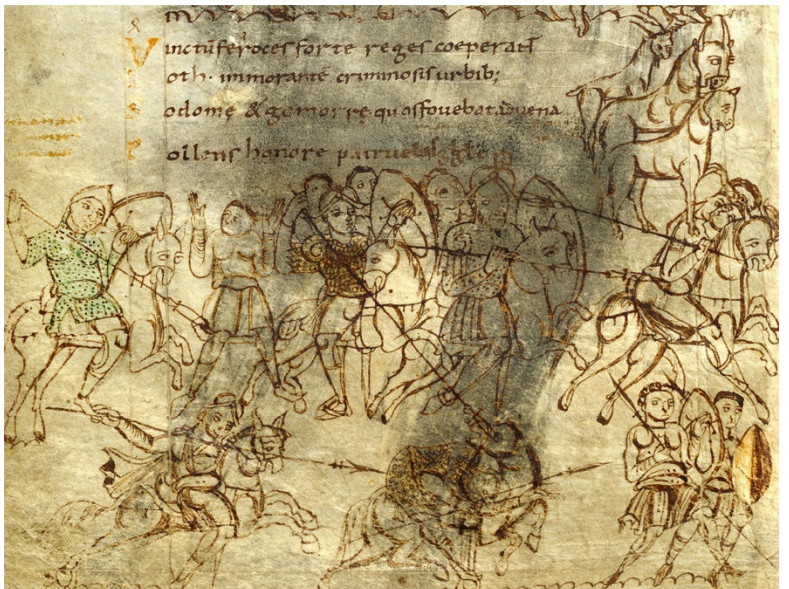 Vinctū feroces forte reges coeperant
oth · immorantē criminosis urbib;
Sodomę & gomorrę quas fovebat advena
Pollens honore patruelis